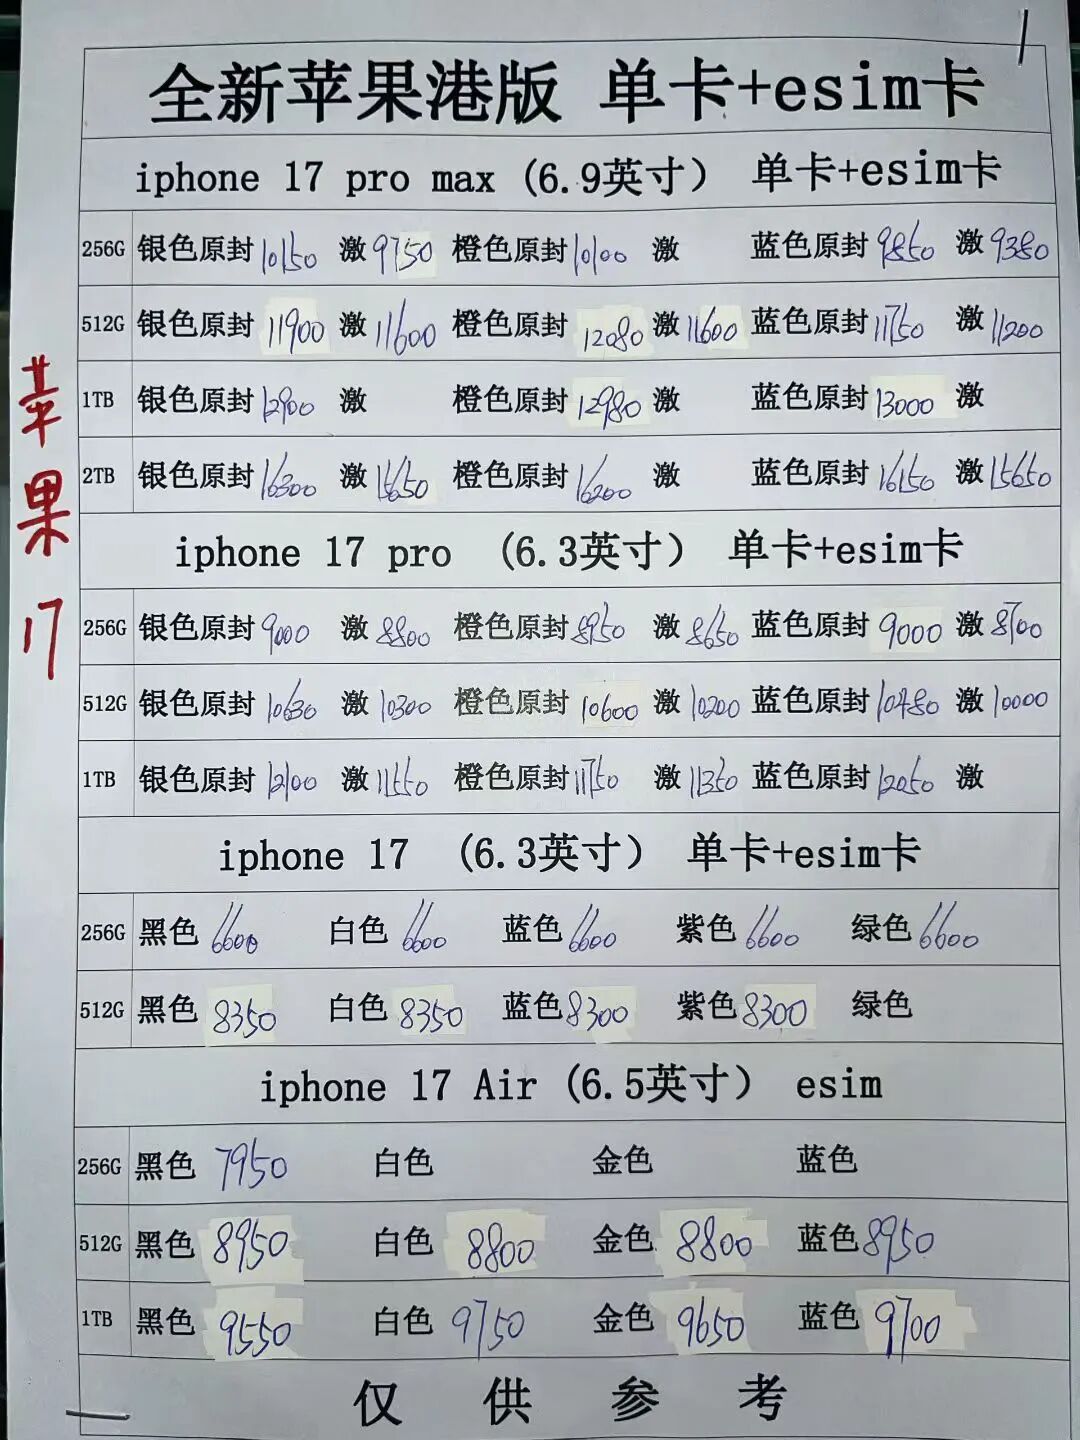 全新苹果港版 单卡+esim卡
iphone 17 pro max (6.9英寸) 单卡+esim卡
256G 银色原封 10150 激 9750 橙色原封 10100 激 蓝色原封 9850 激 9380
512G 银色原封 11900 激 11600 橙色原封 12080 激 11600 蓝色原封 11750 激 11200
1TB 银色原封 12900 激 橙色原封 12980 激 蓝色原封 13000 激
2TB 银色原封 16300 激 15650 橙色原封 16200 激 蓝色原封 16150 激 15650
苹果17
iphone 17 pro (6.3英寸) 单卡+esim卡
256G 银色原封 9000 激 8800 橙色原封 8950 激 8650 蓝色原封 9000 激 8700
512G 银色原封 10630 激 10300 橙色原封 10600 激 10200 蓝色原封 10480 激 10000
1TB 银色原封 12100 激 11550 橙色原封 11750 激 11350 蓝色原封 12050 激
iphone 17 (6.3英寸) 单卡+esim卡
256G 黑色 6600 白色 6600 蓝色 6600 紫色 6600 绿色 6600
512G 黑色 8350 白色 8350 蓝色 8300 紫色 8300 绿色
iphone 17 Air (6.5英寸) esim
256G 黑色 7950 白色 金色 蓝色
512G 黑色 8950 白色 8800 金色 8800 蓝色 8950
1TB 黑色 9550 白色 9750 金色 9650 蓝色 9700
仅 供 参 考